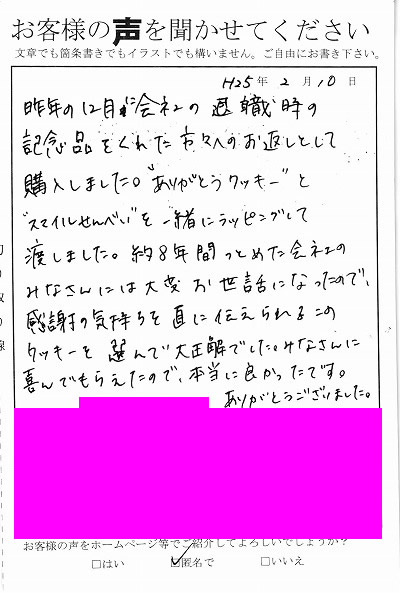 お客様の声を聞かせてください
文章でも箇条書きでもイラストでも構いません。ご自由にお書き下さい。
H25年 2月 10日
昨年の12月に会社の退職時の
記念品をくれた方々へのお返しとして
購入しました。"ありがとうクッキー"と
"スマイルせんべい"を一緒にラッピングして
渡しました。約8年間つとめた会社の
みなさんには大変お世話になったので、
感謝の気持ちを直に伝えられるこの
クッキーを選んで大正解でした。みなさんに
喜んでもらえたので、本当に良かったです。
ありがとうございました。
お客様の声をホームページ等でご紹介してよろしいでしょうか？
□はい □匿名で □いいえ